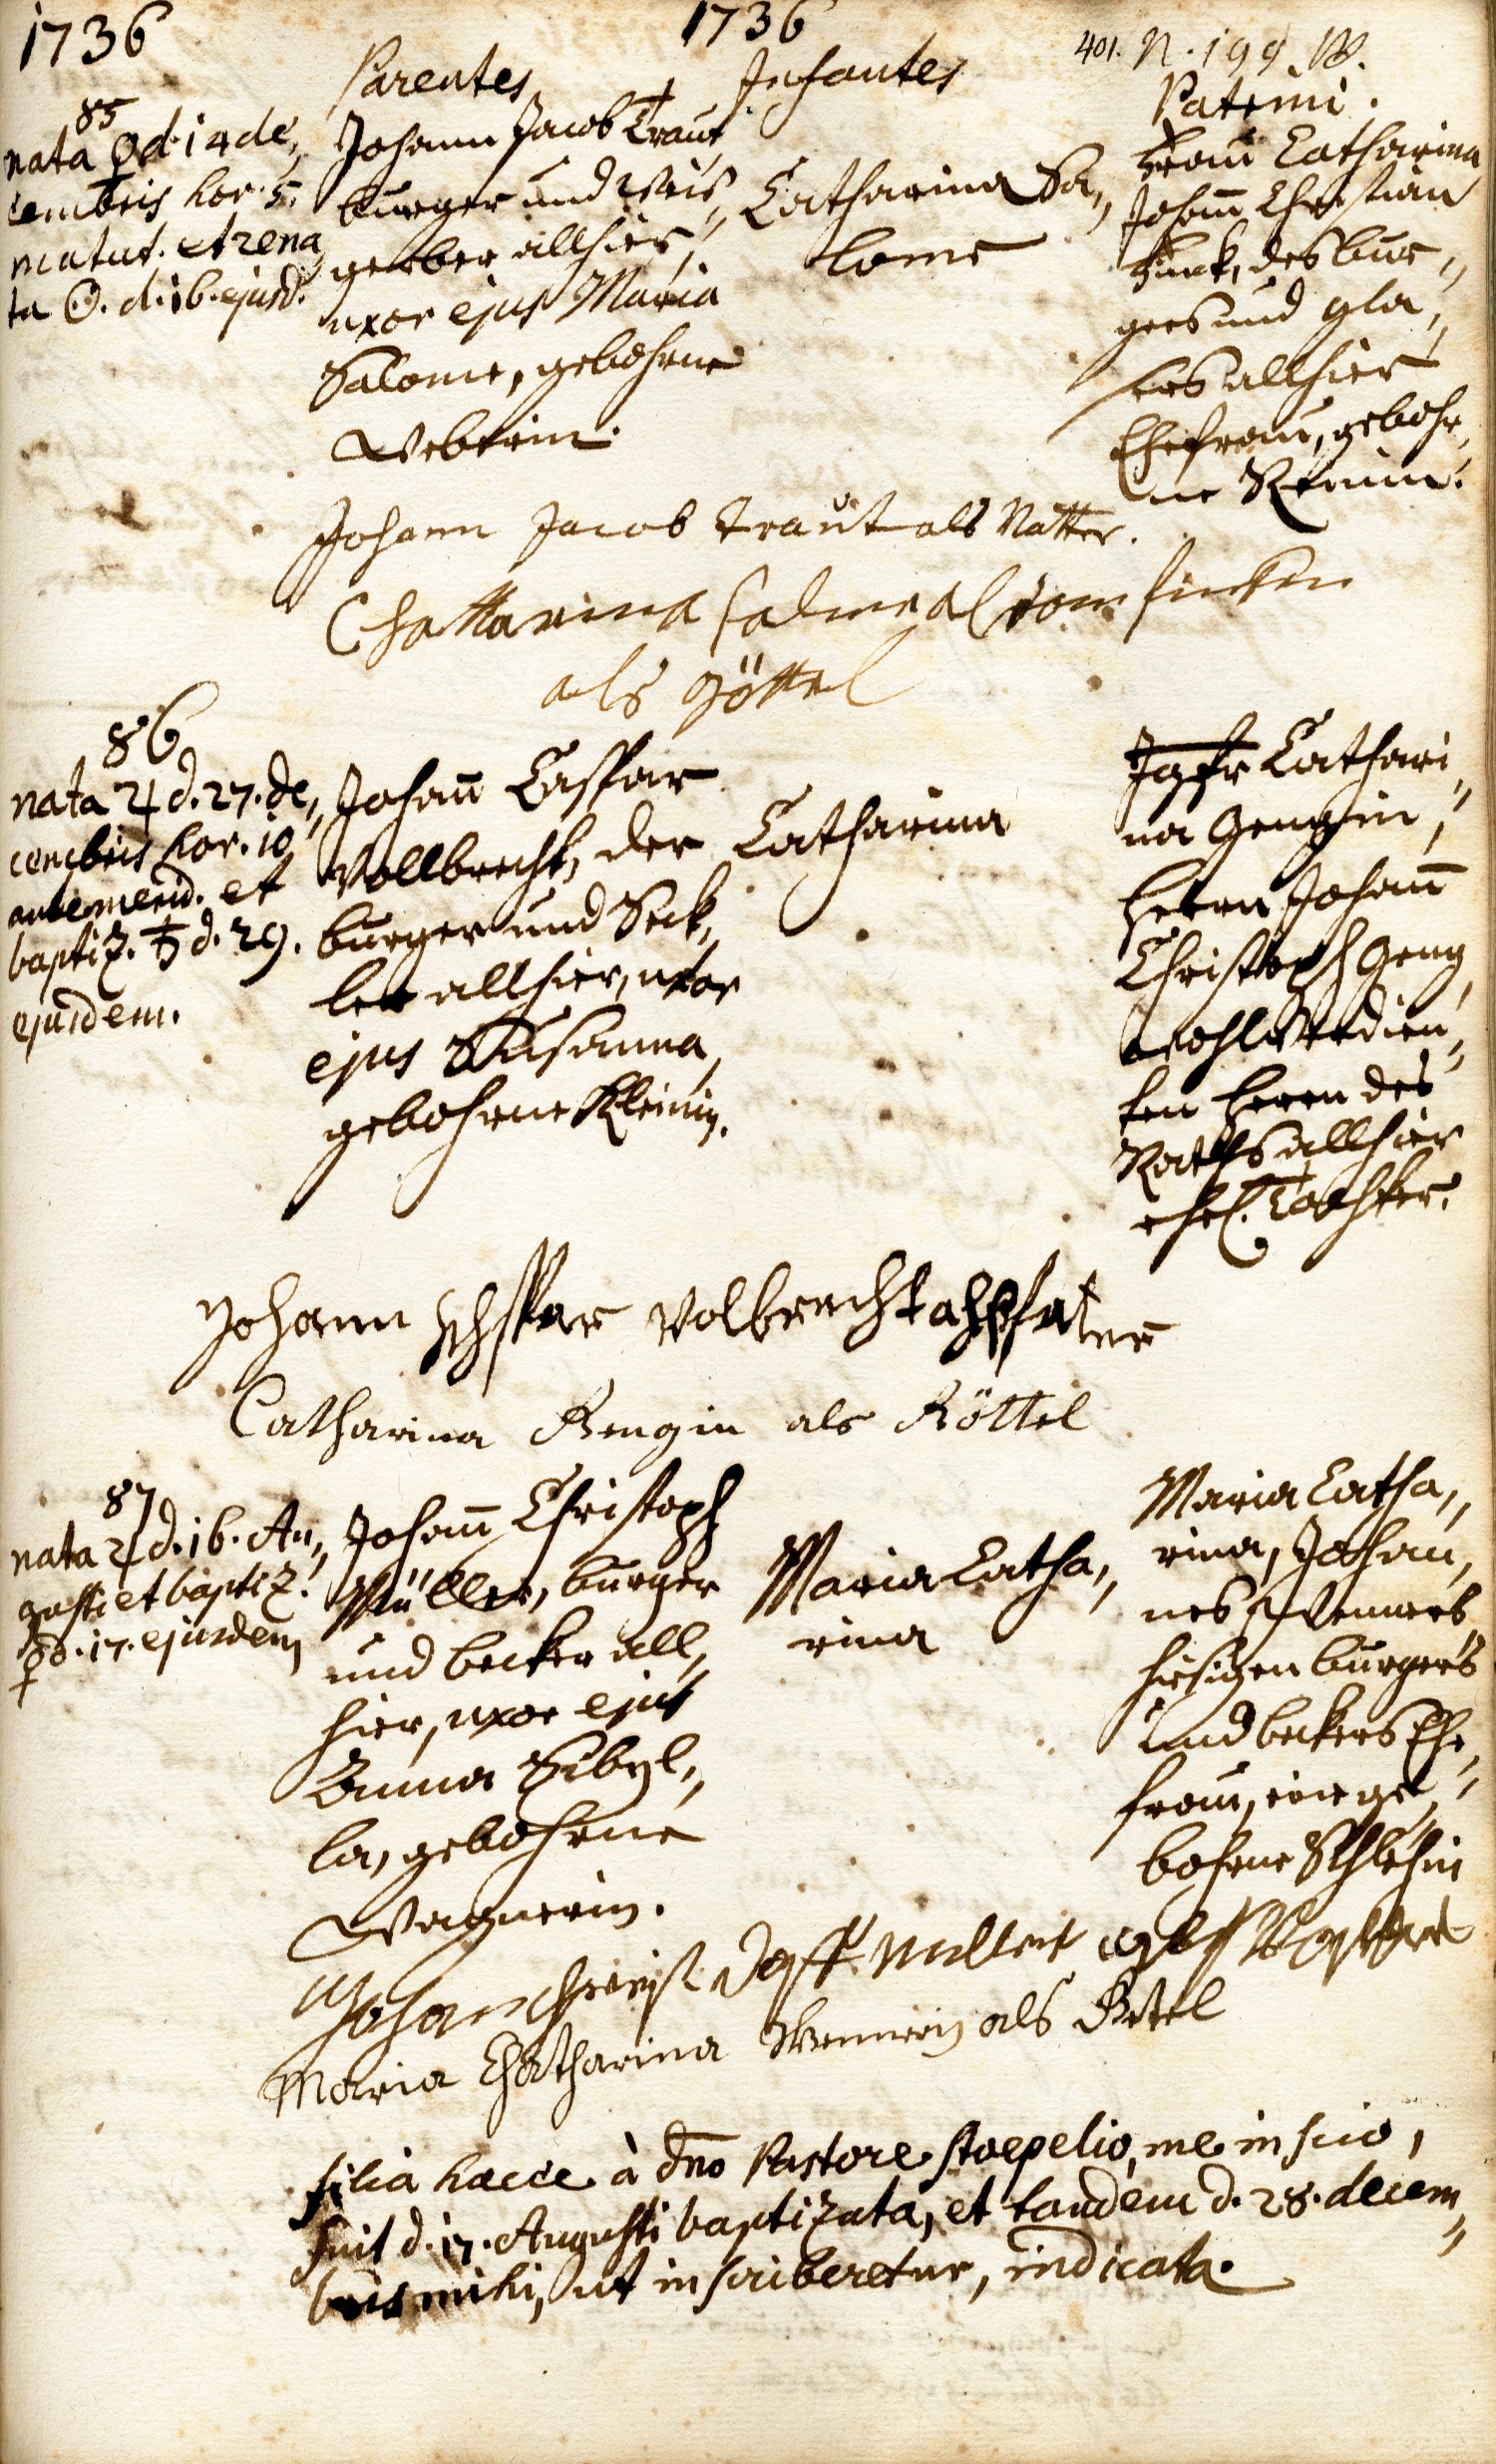 1736
1736
401. N. 199. W.
Parentes
Infantes
Patrini.
85
nata ♀ d. 14 de„
cembris hor. 5.
matut. et rena„
ta ☉. d. 16. ejusd.
Johann Jacob Traut
burger und Weis„
gerber allhier,
uxor ejus Maria
Salome, gebohrne
Weberin.
Catharina Sa„
lome
Frau Catharina
Johañ Christian
Funk, des bur„
gers und gla„
sers allhier
Ehefrau, gebohr„
ne
Johann Jacob Traut als Vatter.
Chattarina
als Göttel
86
nata ♃ d. 27. de„
cembris hor. 10
antemerid. et
baptiz. ♄ d. 29.
ejusdem.
Johañ Caspar
Vollbrecht, der
burger und Seck„
ler allhier, uxor
ejus Susanna,
gebohrne Kleinin.
Catharina
Jgfr Cathari„
na Gengin,
Herrn Johañ
Christoph Geng
wohlverdien„
ten Herrn des
Raths allhier
ehel. Tochter.
Johann Volbrecht als fater
Catharina Gengin als Göttel
87
nata ♃ d. 16. Au„
gusti et baptiz.
♀ d. 17. ejusdem
Johañ Christoph
Müller, burger
und becker all„
hier, uxor ejus
Anna Sibyl„
la, gebohrne
Wagnerin.
Maria Catha„
rina
Maria Catha„
rina, Johan„
nes
hiesigen burgers
und beckers Ehe„
frau, eine ge„
bohrne
Johan christoff muller als
Maria Chatharina als Getel
filia haece à dño Pastore Stoepelio, me inscio,
fuit d. 17. Augusti baptizata, et tandem d. 28. decem„
bris mihi, ut inscriberetur, indicata.